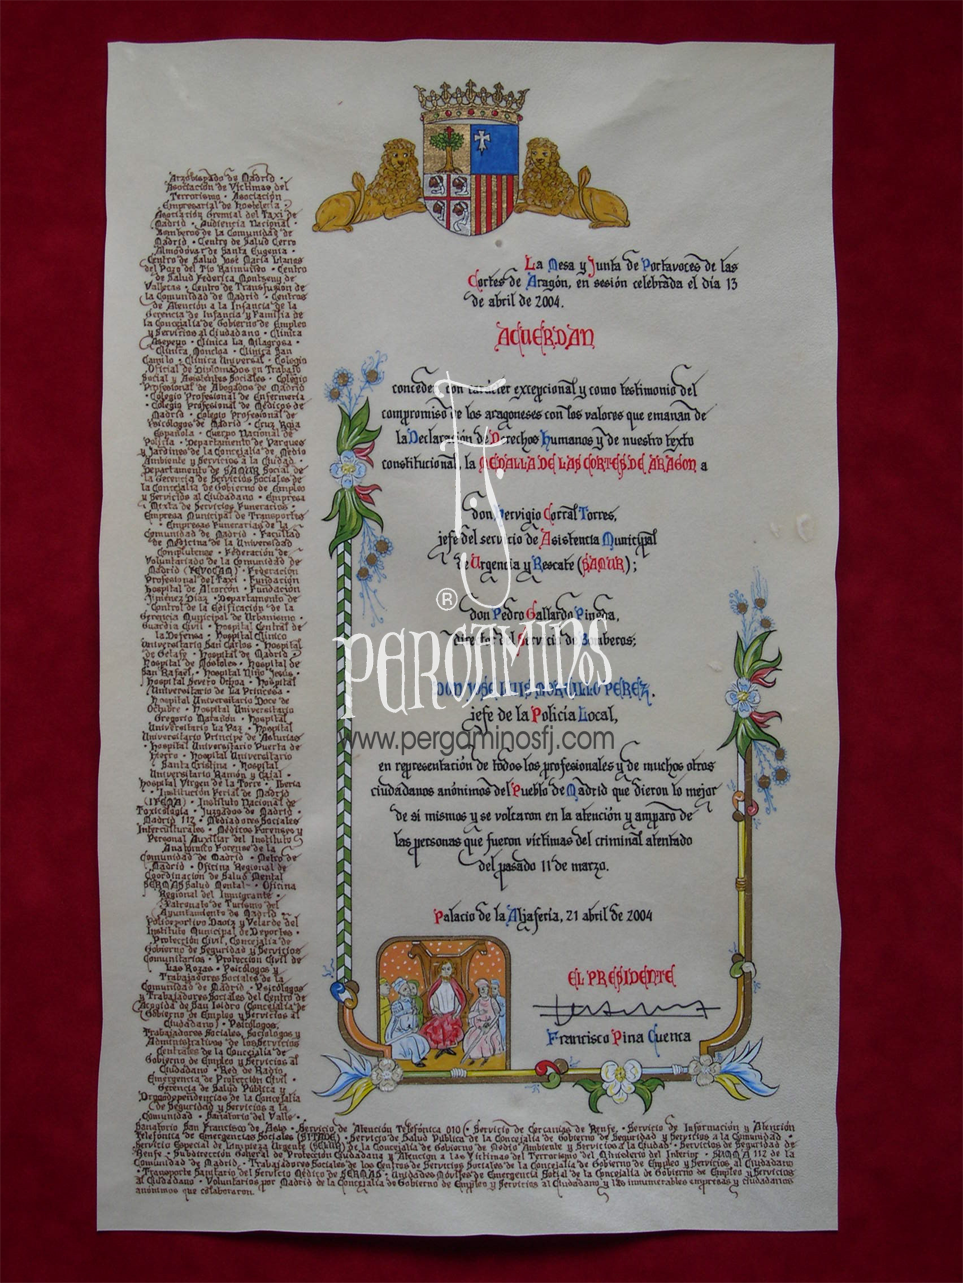 Arzobispado de Madrid ·
Asociación de Víctimas del
Terrorismo · Asociación
Empresarial de Hostelería ·
Asociación Gremial del Taxi de
Madrid · Audiencia Nacional ·
Bomberos de la Comunidad de
Madrid · Centro de Salud Cerro
Almodóvar de Santa Eugenia ·
Centro de Salud José María Llanos
del Pozo del Tío Raimundo · Centro
de Salud Federica Montseny de
Vallecas · Centro de Transfusión de
la Comunidad de Madrid · Centros
de Atención a la Infancia de la
Gerencia de Infancia y Familia de
la Concejalía de Gobierno de Empleo
y Servicios al Ciudadano · Clínica
Asepeyo · Clínica La Milagrosa ·
Clínica Moncloa · Clínica San
Camilo · Clínica Universal · Colegio
Oficial de Diplomados en Trabajo
Social y Asistentes Sociales · Colegio
Profesional de Abogados de Madrid
· Colegio Profesional de Enfermería
· Colegio Profesional de Médicos de
Madrid · Colegio Profesional de
Psicólogos de Madrid · Cruz Roja
Española · Cuerpo Nacional de
Policía · Departamento de Parques
y Jardines de la Concejalía de Medio
Ambiente y Servicios a la Ciudad ·
Departamento de SAMUR Social de
la Gerencia de Servicios Sociales de
la Concejalía de Gobierno de Empleo
y Servicios al Ciudadano · Empresa
Mixta de Servicios Funerarios ·
Empresa Municipal de Transportes
· Empresas Funerarias de la
Comunidad de Madrid · Facultad
de Medicina de la Universidad
Complutense · Federación de
Voluntariado de la Comunidad de
Madrid (FEVOCAM) · Federación
Profesional del Taxi · Fundación
Hospital de Alcorcón · Fundación
Jiménez Díaz · Departamento de
Control de la Edificación de la
Gerencia Municipal de Urbanismo ·
Guardia Civil · Hospital Central de
la Defensa · Hospital Clínico
Universitario San Carlos · Hospital
de Getafe · Hospital de Madrid ·
Hospital de Móstoles · Hospital de
San Rafael · Hospital Niño Jesús ·
Hospital Severo Ochoa · Hospital
Universitario de La Princesa ·
Hospital Universitario Doce de
Octubre · Hospital Universitario
Gregorio Marañón · Hospital
Universitario La Paz · Hospital
Universitario Príncipe de Asturias ·
Hospital Universitario Puerta de
Hierro · Hospital Universitario
Santa Cristina · Hospital
Universitario Ramón y Cajal ·
Hospital Virgen de la Torre · Iberia
· Institución Ferial de Madrid
(IFEMA) · Instituto Nacional de
Toxicología · Juzgados de Madrid ·
Madrid 112 · Mediadores Sociales
Interculturales · Médicos Forenses y
Personal Auxiliar del Instituto
Anatómico Forense de la
Comunidad de Madrid · Metro de
Madrid · Oficina Regional de
Coordinación de Salud Mental
SERMAS Salud Mental · Oficina
Regional del Inmigrante ·
Patronato de Turismo del
Ayuntamiento de Madrid ·
Polideportivo Daoiz y Velarde del
Instituto Municipal de Deportes ·
Protección Civil, Concejalía de
Gobierno de Seguridad y Servicios
Comunitarios · Protección Civil de
Las Rozas · Psicólogos y
Trabajadores Sociales de la
Comunidad de Madrid · Psicólogos
y Trabajadores Sociales del Centro de
Acogida de San Isidro (Concejalía de
Gobierno de Empleo y Servicios al
Ciudadano) · Psicólogos,
Trabajadores Sociales, Sociólogos y
Administrativos de los Servicios
Centrales de la Concejalía de
Gobierno de Empleo y Servicios al
Ciudadano · Red de Radio
Emergencia de Protección Civil ·
Gerencia de Salud Pública y
Drogodependencias de la Concejalía
de Seguridad y Servicios a la
Comunidad · Sanatorio del Valle ·
Sanatorio San Francisco de Asís · Servicio de Atención Telefónica 010 · Servicio de Cercanías de Renfe · Servicio de Información y Atención
Telefónica de Emergencias Sociales (SITADE) · Servicio de Salud Pública de la Concejalía de Gobierno de Seguridad y Servicios a la Comunidad ·
Servicio Especial de Limpieza Urgente (SELUR) de la Concejalía de Gobierno de Medio Ambiente y Servicios a la Ciudad · Servicios de Seguridad de
Renfe · Subdirección General de Protección Ciudadana y Atención a las Víctimas del Terrorismo del Ministerio del Interior · SUMMA 112 de la
Comunidad de Madrid · Trabajadores Sociales de los Centros de Servicios Sociales de la Concejalía de Gobierno de Empleo y Servicios al Ciudadano
· Transporte Sanitario del Servicio Médico de SERMAS · Unidades Móviles de Emergencia Social de la Concejalía de Gobierno de Empleo y Servicios
al Ciudadano · Voluntarios por Madrid de la Concejalía de Gobierno de Empleo y Servicios al Ciudadano y las innumerables empresas y ciudadanos
anónimos que colaboraron.
La Mesa y Junta de Portavoces de las
Cortes de Aragón, en sesión celebrada el día 13
de abril de 2004.
ACUERDAN
conceder con carácter excepcional y como testimonio del
compromiso de los aragoneses con los valores que emanan de
la Declaración de Derechos Humanos y de nuestro texto
constitucional, la MEDALLA DE LAS CORTES DE ARAGON a
don Hervigio Corral Torres,
jefe del servicio de Asistencia Municipal
de Urgencia y Rescate (SAMUR);
don Pedro Gallardo Pineda,
director del Servicio de Bomberos;
DON JOSE LUIS MORCILLO PEREZ.
jefe de la Policía Local,
en representación de todos los profesionales y de muchos otros
ciudadanos anónimos del Pueblo de Madrid que dieron lo mejor
de si mismos y se volcaron en la atención y amparo de
las personas que fueron víctimas del criminal atentado
del pasado 11 de marzo.
Palacio de la Aljafería, 21 abril de 2004
EL PRESIDENTE
Francisco Pina Cuenca
®
PERGAMINOS
www.pergaminosfj.com